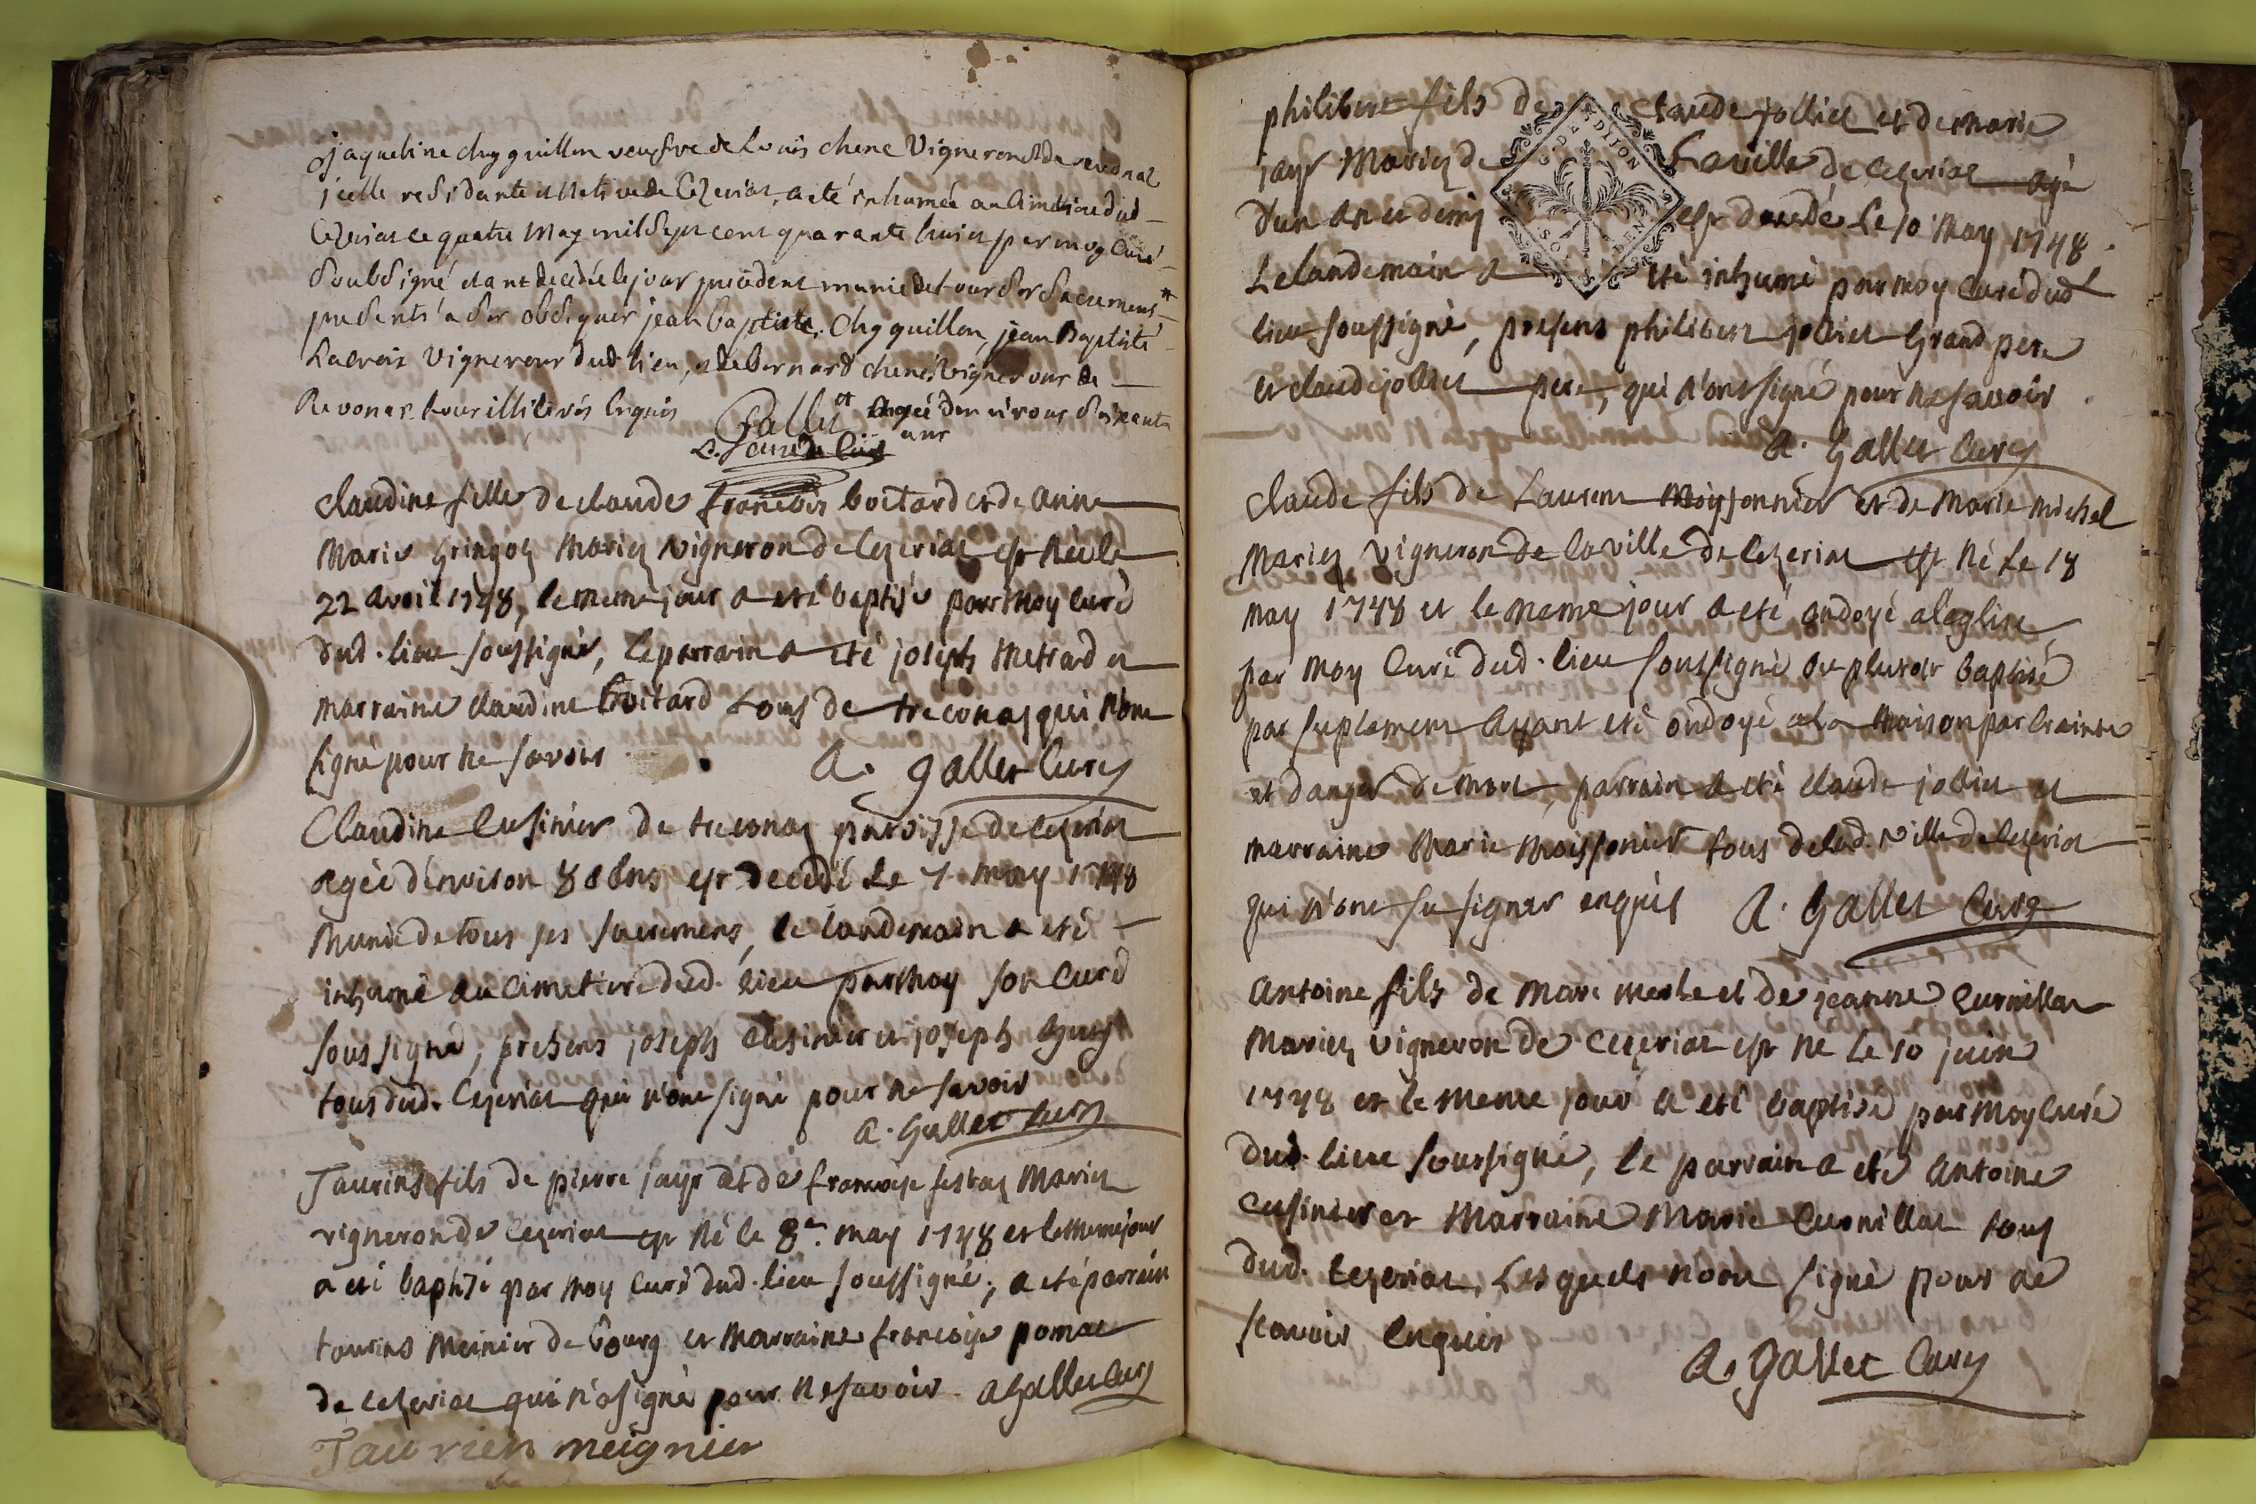 jaqueline chyguillon veufve de Louis chene Vigneron de revonas
jcelle residante et Native de Cezeriat, a eté inhumée au Cimetiere dud
Cezeriat le quatre May mil sept cent quarante huict par moy Curé
Soubsigné etant decedée le jour precedent munie de tous ses sacremens
presents a ses obseques jean baptiste Chyguillon, jean Baptiste
Lacroix Vignerons dud lieu, et de bernard chene Vigneron de
Revonas tous illiterés Enquis et Agée d'environ Soixante
ans
Gallet
Curé
Claudine fille de claude françois boitard et de Anne
Marie gringoz Mariez vigneron de Cezeriat est Née le
22 avril 1748, le meme jour a eté baptisé par Moy Curé
dud. lieu soussigné, le parrain a eté joseph Metrad et
marraine claudine boitard tous de treconaz qui n'ont
signé pour ne savoir
A. Gallet Curé
Claudine Cusinier de treconaz parroisse de Cezeriat
agée d'environ ans est decedé le 7 may 1748
Munie de tous ses sacremens, le landemain a eté
inhumé au cimetiere dud. lieu par Moy son Curé
soussigné, presens joseph Cusinier et joseph
tous dud. Cezeriat qui n'ont signé pour ne savoir
A. Gallet Curé
Taurins fils de pierre jayr et de françoise Mariez
vigneron de Cezeriat est Né le 8e. may 1748 et le meme jour
a eté baptisé par Moy Curé dud. lieu soussigné; a eté parrain
taurins Meinier de bourg et Marraine françoise pomat
de Cezeriat qui n'a signé pour ne savoir A Gallet Curé
Taurien meignier
philibert fils de claude jolliet et de Marie
jayr Mariez de La ville de Cezeriat agé
d'un an et demy est decedé le 10 May 1748
Le landemain a eté inhumé par moy Curé dud
lieu soussigné, presens philibert jolliet Grand pere
et claude jolliet pere, qui n'ont signé pour ne savoir
A. Gallet Curé
Claude fils de Laurent Moissonnier et de Marie Michel
Mariez vigneron de la ville de Cezeriat est Né le 18
may 1748 et le meme jour a eté ondoyé a leglise
par Moy Curé dud. lieu soussigné ou plutot baptisé
par suplement Ayant eté ondoyé a la Maison par crainte
et danger de Mort, parrain a eté claude jolliet et
marraine Marie Moissonier tous de lad. ville de Cezeriat
qui n'ont su signer enquis A. Gallet Curé
Antoine fils de Marc Merle et de jeanne Curnillat
Mariez vigneron de Cezeriat est Né le 10 juin
1748 et le Meme jour a eté baptisé par Moy Curé
dud. lieu soussigné, le parrain a eté Antoine
Cusinier et Marraine Marie Curnillat tous
dud. Cezeriat, Lesquels n'ont signé pour ne
scavoir Enquis
A. Gallet Curé
G. DE DIJON
SOLS
DEN